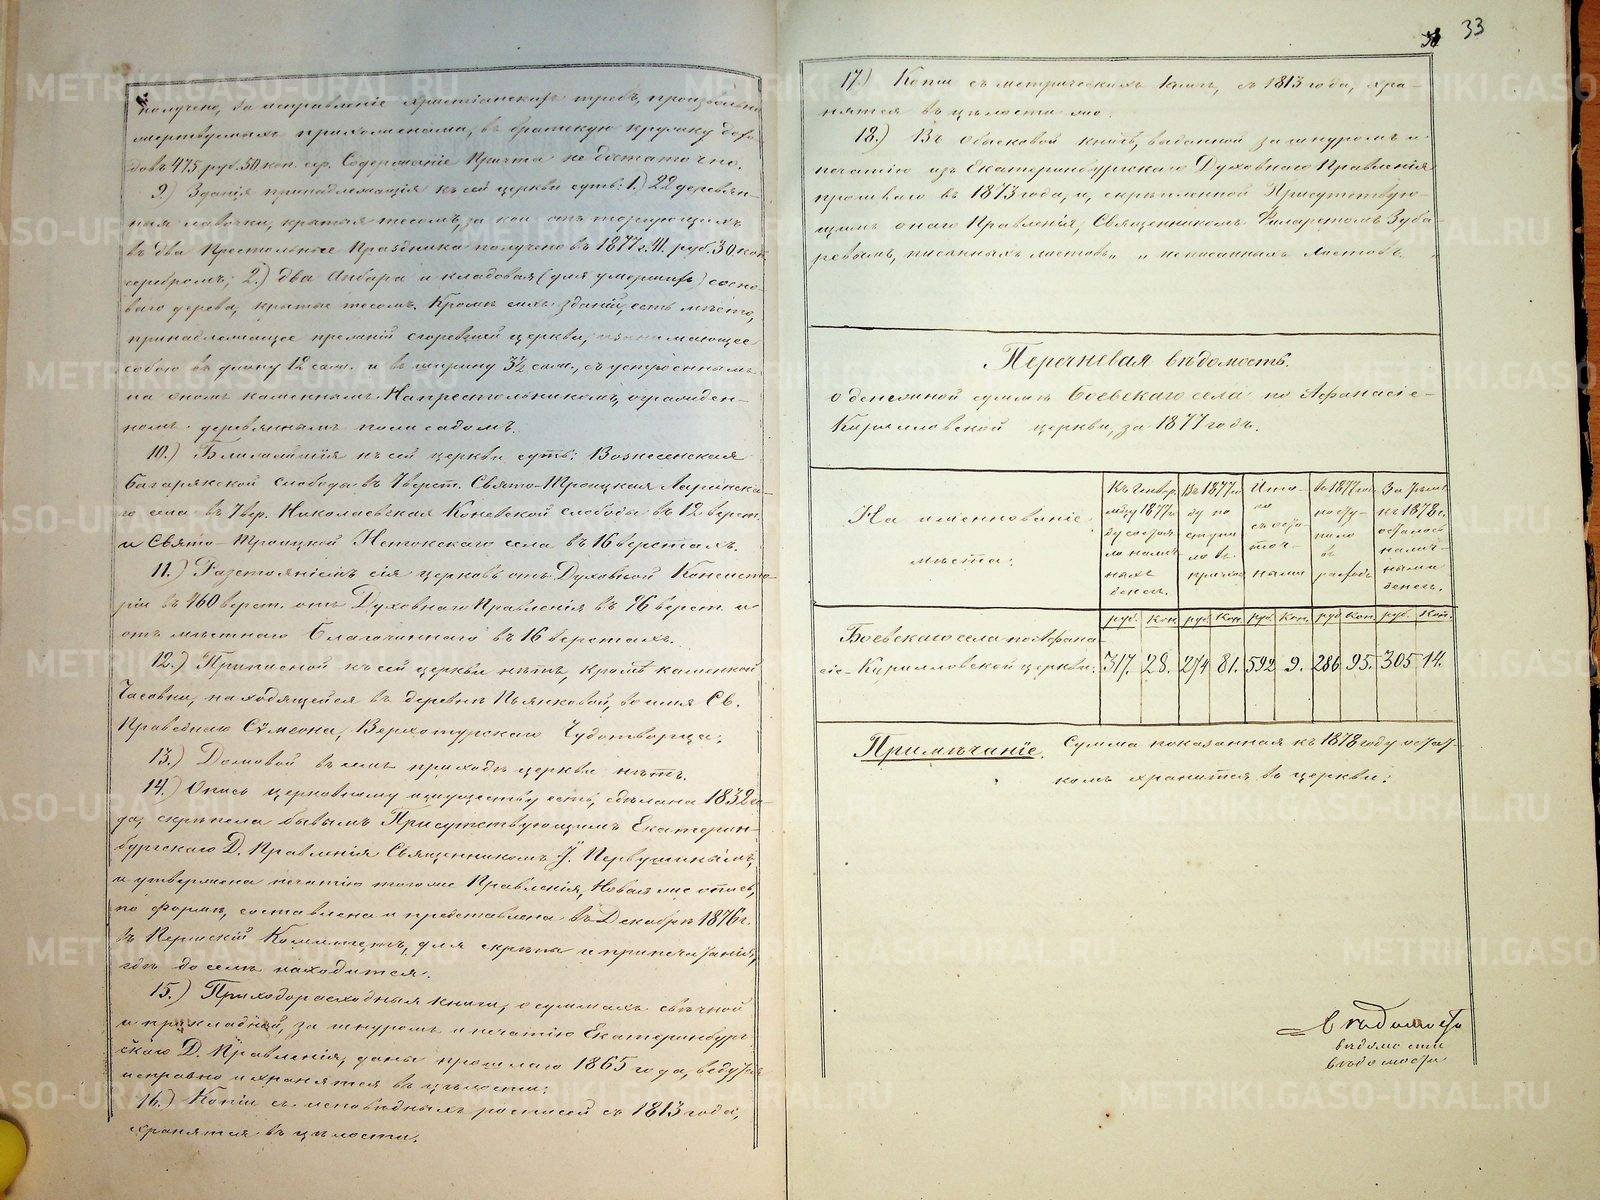 получено, за исправленіе христіанскихъ требъ, произвольно
жертвуемыхъ прихожанами, въ братскую кружку дохо-
довъ 475 руб. 50 коп. сер. Содержаніе Причта не достаточно.
9.) Зданія принадлежащія къ сей церкви суть: 1.) 22 деревян-
ныя лавочки, крытыя тесомъ, за кои отъ торгующихъ
въ два Престольные Праздника получено въ 1877 г. 111 руб. 30 коп.
серебромъ; 2.) два Анбара и кладовая (для умершихъ) сосно-
ваго дерева, крытые тесомъ. Кромѣ сихъ зданій, есть мѣсто,
принадлежащее прежней сгоревшей церкви, занимающее
собою въ длину 12 саж. и въ ширину 3½ саж., съ устроеннымъ
на ономъ каменнымъ Напрестольникомъ, огражден-
номъ деревяннымъ полисадомъ.
10.) Ближайшія къ сей церкви суть: Вознесенская
Багарякской слободы въ 7 верст. Свято-Троицкая Ларинска-
го села въ 7 вер. Николаевская Коневской слободы въ 12 верст.
и Свято-Троицкой села въ 16 верстахъ.
11.) Разстояніемъ сія церковь отъ Духовной Консисто-
ріи въ 460 верст. отъ Духовнаго Правленія въ 96 верст. и
отъ мѣстнаго Благочиннаго въ 16 верстахъ.
12.) Приписной къ сей церкви нѣтъ, кромѣ каменной
Часовни, находящейся въ деревнѣ Пьянковой, во имя Св.
Праведнаго Сѵмеона, Верхотурскаго Чудотворца.
13.) Домовой въ семъ приходѣ церкви нѣтъ.
14.) Опись церковному имуществу есть, сдѣлана 1832 го-
да, скрѣплена бывымъ Присутствующимъ Екатерин-
бургскаго Д. Правленія Священникомъ І. Первушинымъ,
и утверждена печатію тогоже Правленія, Новая же опись,
по формѣ, составлена и представлена въ Декабрѣ 1876 г.
въ Пермскій Комитетъ, для скрѣпы и припечатанія,
гдѣ до селѣ находится.
15.) Приходорасходныя книги, о суммахъ свѣчной
и прикладной, за шнуромъ и печатію Екатеринбург-
скаго Д. Правленія, даны прошлаго 1865 года, ведутся
исправно и хранятся въ цѣлости.
16.) Копіи съ исповѣдныхъ росписей съ 1813 года,
хранятся въ цѣлости.
33
17.) Копіи съ метрическихъ книгъ, съ 1813 года, хра-
нятся въ цѣлости же.
18.) Въ Обысковой книгѣ, выданной за шнуромъ и
печатію изъ Екатеринбургскаго Духовнаго Правленія
прошлаго въ 1873 года, и, скрѣпленной Присутствую-
щимъ онаго Правленія, Священникомъ Филаретомъ Зуба-
ревымъ, писанныхъ листовъ „ „ неписанныхъ листовъ „
Перечневая вѣдомость.
о денежной суммѣ Боевскаго села по Афанасіе-
Кирилловской церкви, за 1877 годъ.
На именованіе
мѣста:
Къ Генвар.
мѣсцу 1877 го
ду состоя
ло налич
ныхъ
денегъ.
Въ 1877 го
ду по
ступи
ло въ
приходъ
Ито-
го
съ оста
точ-
ными
въ 1877 году
посту-
пило
въ
расходъ
За тѣмъ
къ 1878 г.
осталось
налич-
ными
денегъ.
руб. коп. руб. коп. руб. коп. руб. коп. руб. коп.
Боевскаго села по Афана-
сіе-Кирилловской церкви: 317. 28. 274 81. 592 9. 286 95. 305 14.
Примѣчаніе. Сумма показанная къ 1878 году остат-
комъ хранится въ церкви.
вѣдомости
вѣдомости
вѣдомости
METRIKI.GASO-URAL.RU